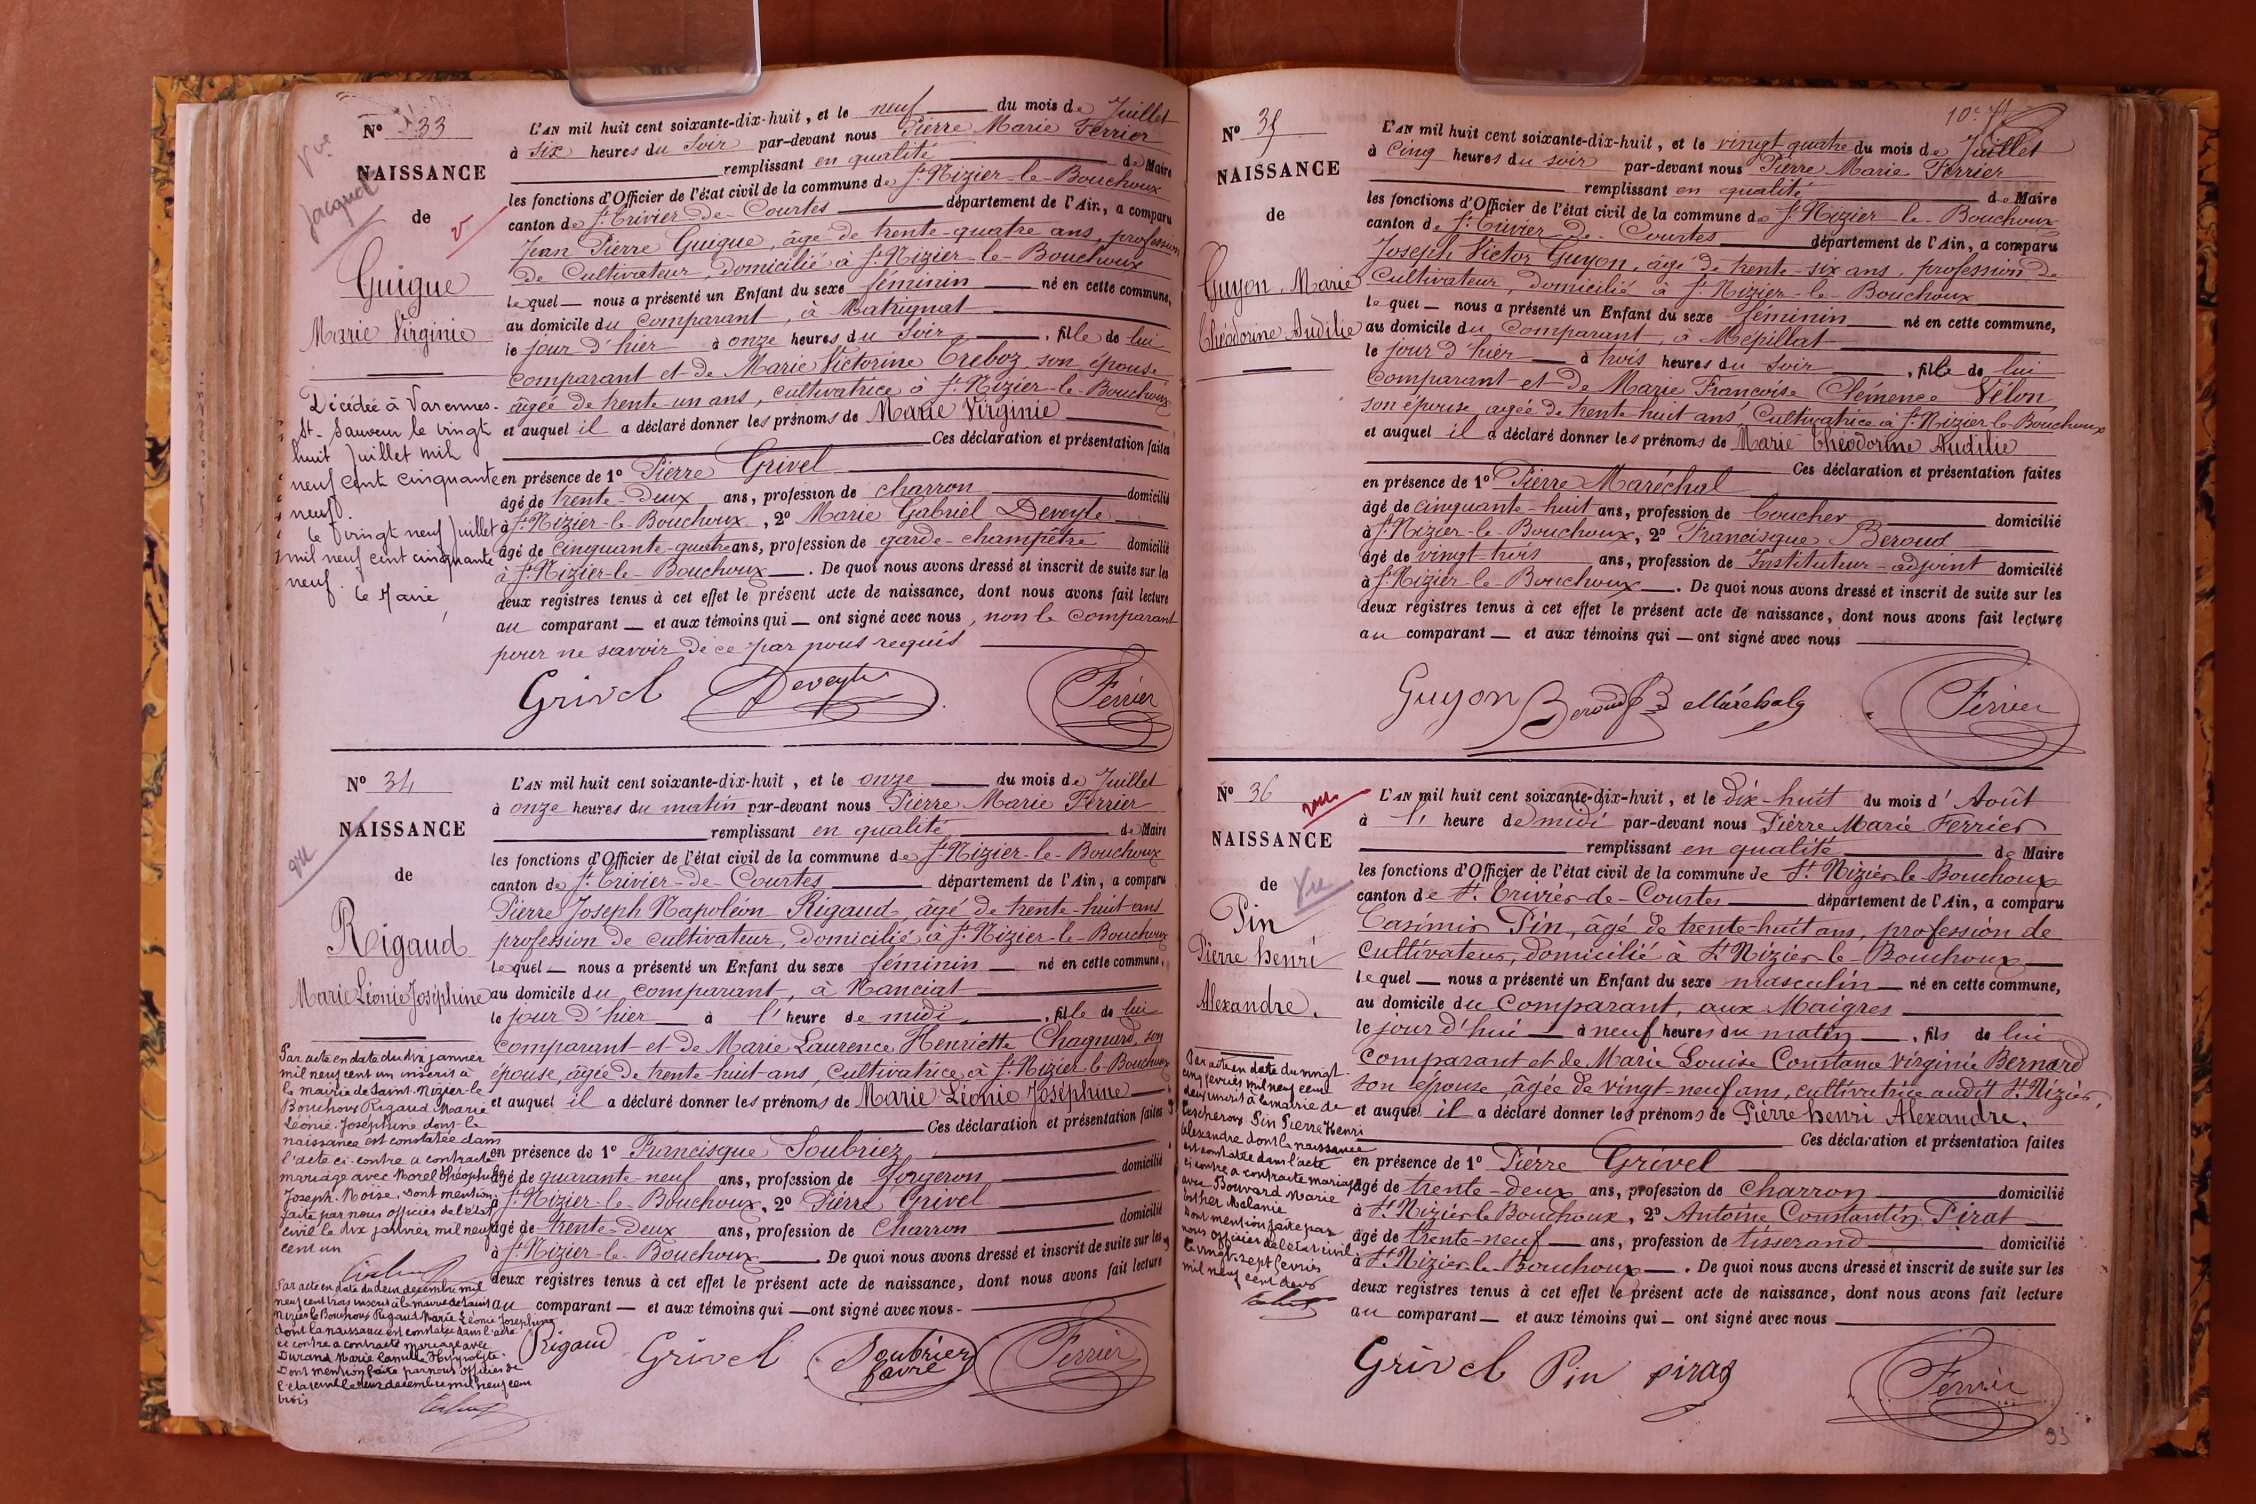 N° 33
Vve
Jacquet
NAISSANCE
de
Guigue
Marie Virginie
Décédée à Varennes-
St-Sauveur le vingt
huit juillet mil
neuf cent cinquante
neuf.
le vingt neuf Juillet
mil neuf cent cinquante
neuf.
Le Maire,
L'AN mil huit cent soixante-dix-huit, et le neuf du mois de Juillet
à six heures du soir par-devant nous Pierre Marie Ferrier
remplissant en qualité de Maire
les fonctions d'Officier de l'état civil de la commune de St-Nizier-le-Bouchoux
canton de St-Trivier-de-Courtes département de l'Ain, a comparu
Jean Pierre Guigue, âgé de trente-quatre ans, profession
de Cultivateur, domicilié à St-Nizier-le-Bouchoux
lequel nous a présenté un Enfant du sexe féminin né en cette commune,
au domicile du comparant, à Matrignat
le jour d'hier à onze heures du soir, fille de lui
comparant et de Marie Victorine Treboz, son épouse
âgée de trente-un ans, cultivatrice à St-Nizier-le-Bouchoux
et auquel il a déclaré donner les prénoms de Marie Virginie
Ces déclaration et présentation faites
en présence de 1° Pierre Grivel
âgé de trente-deux ans, profession de charron domicilié
à St-Nizier-le-Bouchoux, 2° Marie Gabriel Deveyle
âgé de cinquante-quatre ans, profession de garde-champêtre domicilié
à St-Nizier-le-Bouchoux. De quoi nous avons dressé et inscrit de suite sur les
deux registres tenus à cet effet le présent acte de naissance, dont nous avons fait lecture
au comparant et aux témoins qui ont signé avec nous, non le comparant
pour ne savoir de ce par nous requis
Grivel Deveyle Ferrier
N° 34
vu
NAISSANCE
de
Rigaud
Marie Léonie Joséphine
Par acte en date du dix janvier
mil neuf cent un inscrit à
la mairie de Saint-Nizier-le
Bouchoux Rigaud Marie
Léonie Joséphine dont la
naissance est constatée dans
l'acte ci-contre a contracté
mariage avec Morel Théophile
Joseph Moïse. Dont mention
faite par nous officier de l'état
civil le dix janvier mil neuf
cent un
Par acte en date du deux décembre mil
neuf cent trois inscrit à la mairie de Saint
Nizier le Bouchoux Rigaud Marie Léonie Joséphine
dont la naissance est constatée dans l'acte
ci contre a contracté mariage avec
Durand Marie Camille Hippolyte.
Dont mention faite par nous officier de
l'état civil le deux décembre mil neuf cent
trois
L'AN mil huit cent soixante-dix-huit, et le onze du mois de Juillet
à onze heures du matin par-devant nous Pierre Marie Ferrier
remplissant en qualité de Maire
les fonctions d'Officier de l'état civil de la commune de St-Nizier-le-Bouchoux
canton de St-Trivier-de-Courtes département de l'Ain, a comparu
Pierre Joseph Napoléon Rigaud, âgé de trente-huit ans
profession de cultivateur, domicilié à St-Nizier-le-Bouchoux
lequel nous a présenté un Enfant du sexe féminin né en cette commune,
au domicile du comparant, à Nanciat
le jour d'hier à l'heure de midi, fille de lui
comparant et de Marie Laurence Henriette Chagnard, son
épouse, âgée de trente-huit ans, Cultivatrice à St-Nizier-le-Bouchoux
et auquel il a déclaré donner les prénoms de Marie Léonie Joséphine
Ces déclaration et présentation faites
en présence de 1° Francisque Soubriez
âgé de quarante-neuf ans, profession de forgeron domicilié
à St-Nizier-le-Bouchoux, 2° Pierre Grivel
âgé de trente-deux ans, profession de Charron domicilié
à St-Nizier-le-Bouchoux. De quoi nous avons dressé et inscrit de suite sur les
deux registres tenus à cet effet le présent acte de naissance, dont nous avons fait lecture
au comparant et aux témoins qui ont signé avec nous.
Rigaud Grivel Soubriez favre Ferrier
10e
N° 35
NAISSANCE
de
Guyon Marie
Théodorine Audilie
L'AN mil huit cent soixante-dix-huit, et le vingt quatre du mois de Juillet
à cinq heures du soir par-devant nous Pierre Marie Ferrier
remplissant en qualité de Maire
les fonctions d'Officier de l'état civil de la commune de St-Nizier-le-Bouchoux
canton de St-Trivier-de-Courtes département de l'Ain, a comparu
Joseph Victor Guyon, âgé de trente-six ans, profession de
Cultivateur, domicilié à St-Nizier-le-Bouchoux
lequel nous a présenté un Enfant du sexe féminin né en cette commune,
au domicile du comparant, à Mépillat
le jour d'hier à trois heures du soir, fille de lui
comparant et de Marie Françoise Clémence Vélon
son épouse, agée de trente-huit ans, Cultivatrice à St-Nizier-le-Bouchoux
et auquel il a déclaré donner les prénoms de Marie Théodorine Audilie
Ces déclaration et présentation faites
en présence de 1° Pierre Maréchal
âgé de cinquante-huit ans, profession de boucher domicilié
à St-Nizier-le-Bouchoux, 2° Francisque Beroud
âgé de vingt-trois ans, profession de Instituteur-adjoint domicilié
à St-Nizier-le-Bouchoux. De quoi nous avons dressé et inscrit de suite sur les
deux registres tenus à cet effet le présent acte de naissance, dont nous avons fait lecture
au comparant et aux témoins qui ont signé avec nous
Guyon Beroud Maréchal Ferrier
N° 36
NAISSANCE
de
Vu
Pin
Pierre henri
Alexandre.
Par acte en date du vingt
cinq février mil neuf cent
deux inscrit à la mairie de
Lescheroux Pin Pierre Henri
Alexandre dont la naissance
est constatée dans l'acte
ci contre a contracté mariage
avec Bouvard Marie
Esther Mélanie
Dont mention faite par
nous officier de l'état civil
le vingt sept février
mil neuf cent deux
L'AN mil huit cent soixante-dix-huit, et le dix-huit du mois d'Août
à l'heure de midi par-devant nous Pierre Marie Ferrier
remplissant en qualité de Maire
les fonctions d'Officier de l'état civil de la commune de St Nizier le Bouchoux
canton de St Trivier-de-Courtes département de l'Ain, a comparu
Casimir Pin, âgé de trente-huit ans, profession de
cultivateur, domicilié à St Nizier-le-Bouchoux
lequel nous a présenté un Enfant du sexe masculin né en cette commune,
au domicile du comparant, aux Maigres
le jour d'hui à neuf heures du matin, fils de lui
comparant et de Marie Louise Constance Virginie Bernard
son épouse, âgée de vingt-neuf ans, cultivatrice audit St Nizier,
et auquel il a déclaré donner les prénoms de Pierre henri Alexandre.
Ces déclaration et présentation faites
en présence de 1° Pierre Grivel
âgé de trente-deux ans, profession de charron domicilié
à St Nizier le Bouchoux, 2° Antoine Constantin Pirat
âgé de trente-neuf ans, profession de tisserand domicilié
à St Nizier-le-Bouchoux. De quoi nous avons dressé et inscrit de suite sur les
deux registres tenus à cet effet le présent acte de naissance, dont nous avons fait lecture
au comparant et aux témoins qui ont signé avec nous
Grivel Pin pirat Ferrier